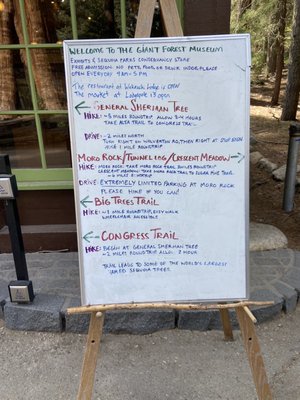 WELCOME TO THE GIANT FOREST MUSEUM
EXHIBITS & SEQUOIA PARKS CONSERVANCY STORE
FREE ADMISSION. NO PETS, FOOD, OR DRINK INSIDE, PLEASE
OPEN EVERYDAY 9AM-5PM
The restaurant at Wuksachi Lodge is OPEN
The market at Lodgepole is open.
GENERAL SHERMAN TREE
HIKE: ~6 MILES ROUNDTRIP ALLOW 3-4 HOURS
TAKE ALTA TRAIL TO CONGRESS TRAIL
DRIVE: ~2 MILES NORTH
TURN RIGHT ON WOLVERTON RD, THEN RIGHT AT STOP SIGN
HIKE 1 MILE ROUNDTRIP
MORO ROCK/TUNNEL LOG/CRESCENT MEADOW
HIKE: MORO ROCK: TAKE MORO ROCK TRAIL MILES ROUNDTRIP
CRESCENT MEADOW: TAKE MORO ROCK TRAIL TO SUGAR PINE TRAIL
~6 MILE ROUNDTRIP
DRIVE: EXTREMELY LIMITED PARKING AT MORO ROCK
PLEASE HIKE IF YOU CAN!
BIG TREES TRAIL
HIKE: MILE ROUNDTRIP, EASY WALK
WHEELCHAIR ACCESSIBLE
CONGRESS TRAIL
HIKE: BEGIN AT GENERAL SHERMAN TREE
~2 MILES ROUNDTRIP ALLOW 2 HOUR
TRAIL LEADS TO SOME OF THE WORLD'S LARGEST
NAMED SEQUOIA TREES.